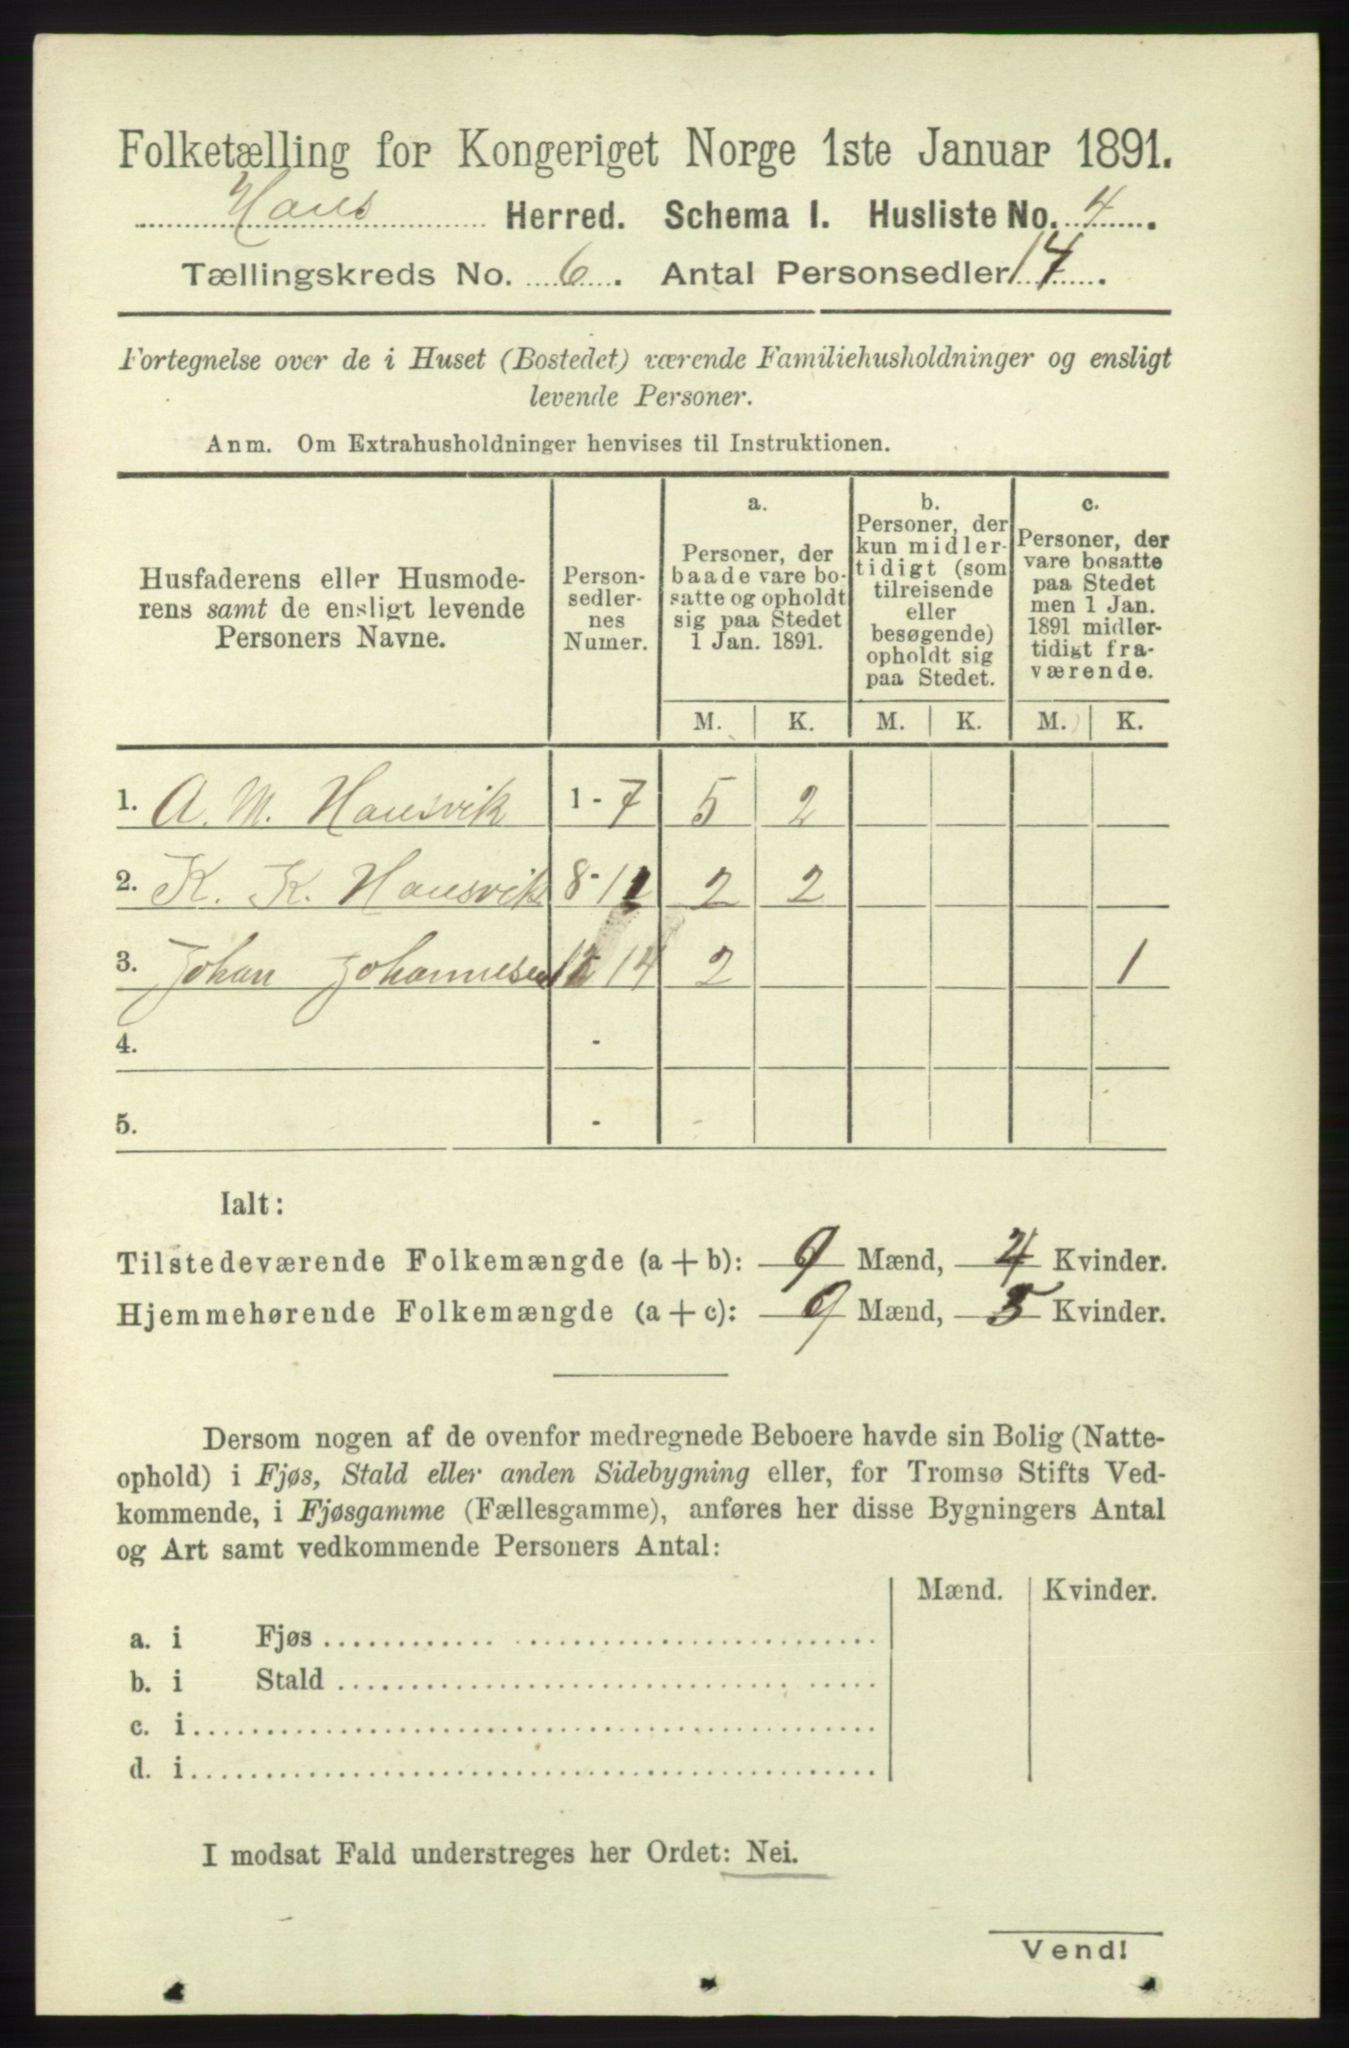 Folketælling for Kongeriget Norge 1ste Januar 1891.
Haus Herred. Schema I. Husliste No. 4.
Tællingskreds No. 6. Antal Personsedler 14.
Fortegnelse over de i Huset (Bostedet) værende Familiehusholdninger og ensligt
levende Personer.
Anm. Om Extrahusholdninger henvises til Instruktionen.
Husfaderens eller Husmode-
rens samt de ensligt levende
Personers Navne.
Person-
sedler-
nes
Numer.
a.
Personer, der
baade vare bo-
satte og opholdt
sig paa Stedet
1 Jan. 1891.
b.
Personer, der
kun midler-
tidigt (som
tilreisende
eller
besøgende)
opholdt sig
paa Stedet.
c.
Personer, der
vare bosatte
paa Stedet
men 1 Jan.
1891 midler-
tidigt fra-
værende.
M. K. M. K. M. K.
1. A. M. Hausvik 1 - 7 5 2
2. K. K. Hausvik 8 - 11 2 2
3. Johan Johannesen 12 14 2 1
4. -
5. -
Ialt:
Tilstedeværende Folkemængde (a + b): 9 Mænd, 4 Kvinder.
Hjemmehørende Folkemængde (a + c): 9 Mænd, 5 Kvinder.
Dersom nogen af de ovenfor medregnede Beboere havde sin Bolig (Natte-
ophold) i Fjøs, Stald eller anden Sidebygning eller, for Tromsø Stifts Ved-
kommende, i Fjøsgamme (Fællesgamme), anføres her disse Bygningers Antal
og Art samt vedkommende Personers Antal:
Mænd. Kvinder.
a. i Fjøs
b. i Stald
c. i
d. i
I modsat Fald understreges her Ordet: Nei.
Vend!